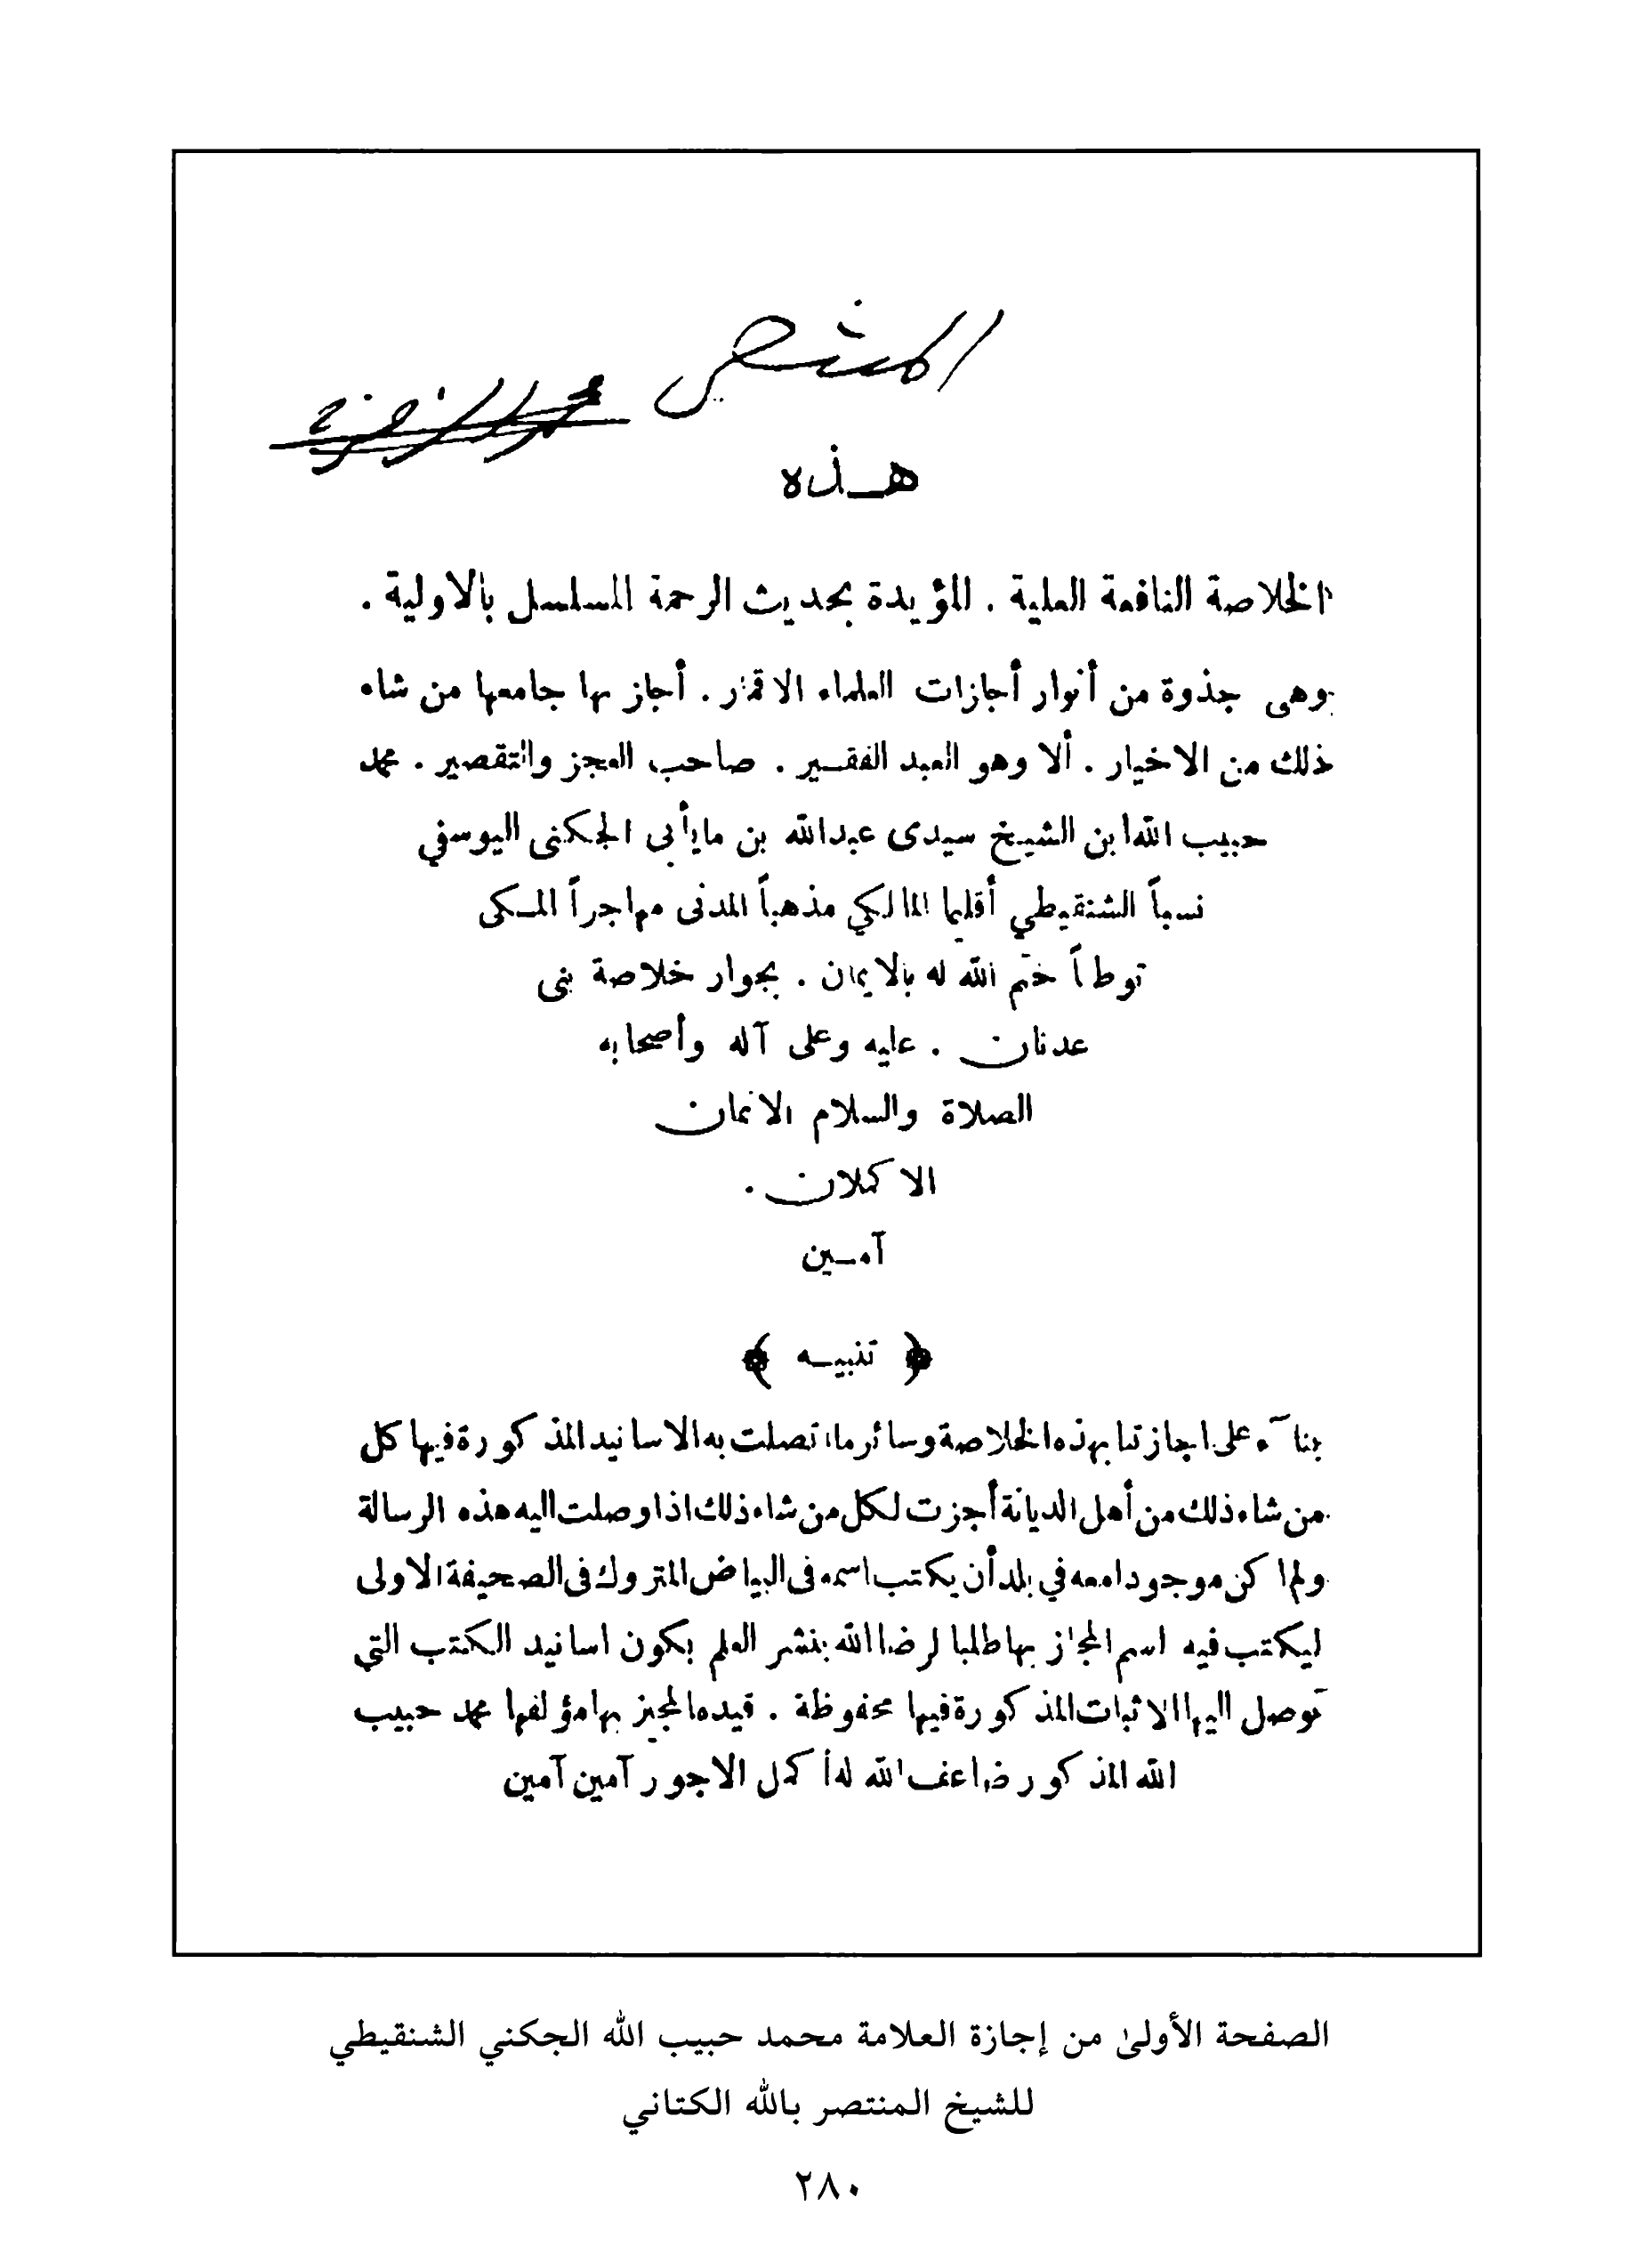 المنتصر
هـذه
الخلاصة النافعة العلية . المؤيدة بحديث الرحمة المسلسل بالاولية .
وهى جذوة من أنوار أجازات العلماء الاقمار . أجاز بها جامعها من شاء
ذلك من الاخيار . ألا وهو العبد الفقـير . صاحب العجز والتقصير . محمد
حبيب الله ابن الشيـخ سيدى عبدالله بن مايأبى الجكنى اليوسفي
نسباً الشنقيطي أقليما المالكي مذهباً المدنى مهاجراً المـكى
توطاً ختم الله له بالايمان . بجوار خلاصة بنى
عدنان . عليه وعلى آله وأصحابه
الصلاة والسلام الاتمان
الاكملان .
آمـين
﴿ تنبيـه ﴾
بنآء على اجازتنا بهذه الخلاصة وسائر ما اتصلت به الاسانيد المذكورة فيها كل
من شاء ذلك من أهل الديانة أجزت لكل من شاء ذلك اذا وصلت اليه هذه الرسالة
ولم اكن موجودا معه في بلد أن يكتب اسمه فى البياض المتروك فى الصحيفة الاولى
ليكتب فيه اسم المجاز بها طلبا لرضا الله بنشر العلم بكون اسانيد الكتب التي
توصل اليها الاثبات المذكورة فيها محفوظة . قيده المجيز بها مؤلفها محمد حبيب
الله المذكور ضاعف الله له أكمل الاجور آمين آمين
الصفحة الأولىٰ من إجازة العلامة محمد حبيب الله الجكني الشنقيطي
للشيخ المنتصر بالله الكتاني
٢٨٠